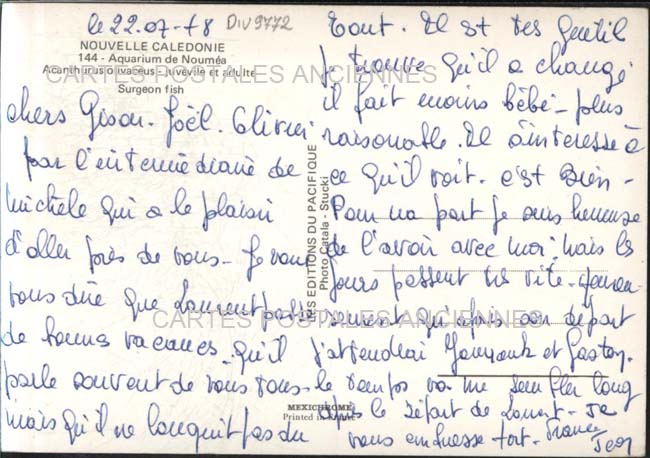 le 22.07-78 DIV9772
NOUVELLE CALEDONIE
144 - Aquarium de Nouméa
Acanthurus olivaceus - Juvévile et adulte
Surgeon fish
chers Gisou. Joël. Olivier
par l'intermédiaire de
michèle qui a le plaisir
d'aller près de vous - Je veux
vous dire que Laurent passe
de bonnes vacances. qu'il
parle souvent de vous tous -
mais qu'il ne languit pas du
tout. Il est très gentil
je trouve qu'il a changé
il fait moins bébé - plus
raisonable. Il s'interesse à
ce qu'il voit. c'est bien -
Pour ma part je suis heureuse
de l'avoir avec moi. mais les
jours passent très vite -
qu'après son départ
j'attendrai et Gaston.
le temps va me sembler long
après le départ de Laurent - Je
vous embrasse fort - France
Jean
MS EDITIONS DU PACIFIQUE
Photo Catala - Stucki
MEXICHROME
Printed in France
CARTES POSTALES ANCIENNES
CARTES POSTALES ANCIENNES